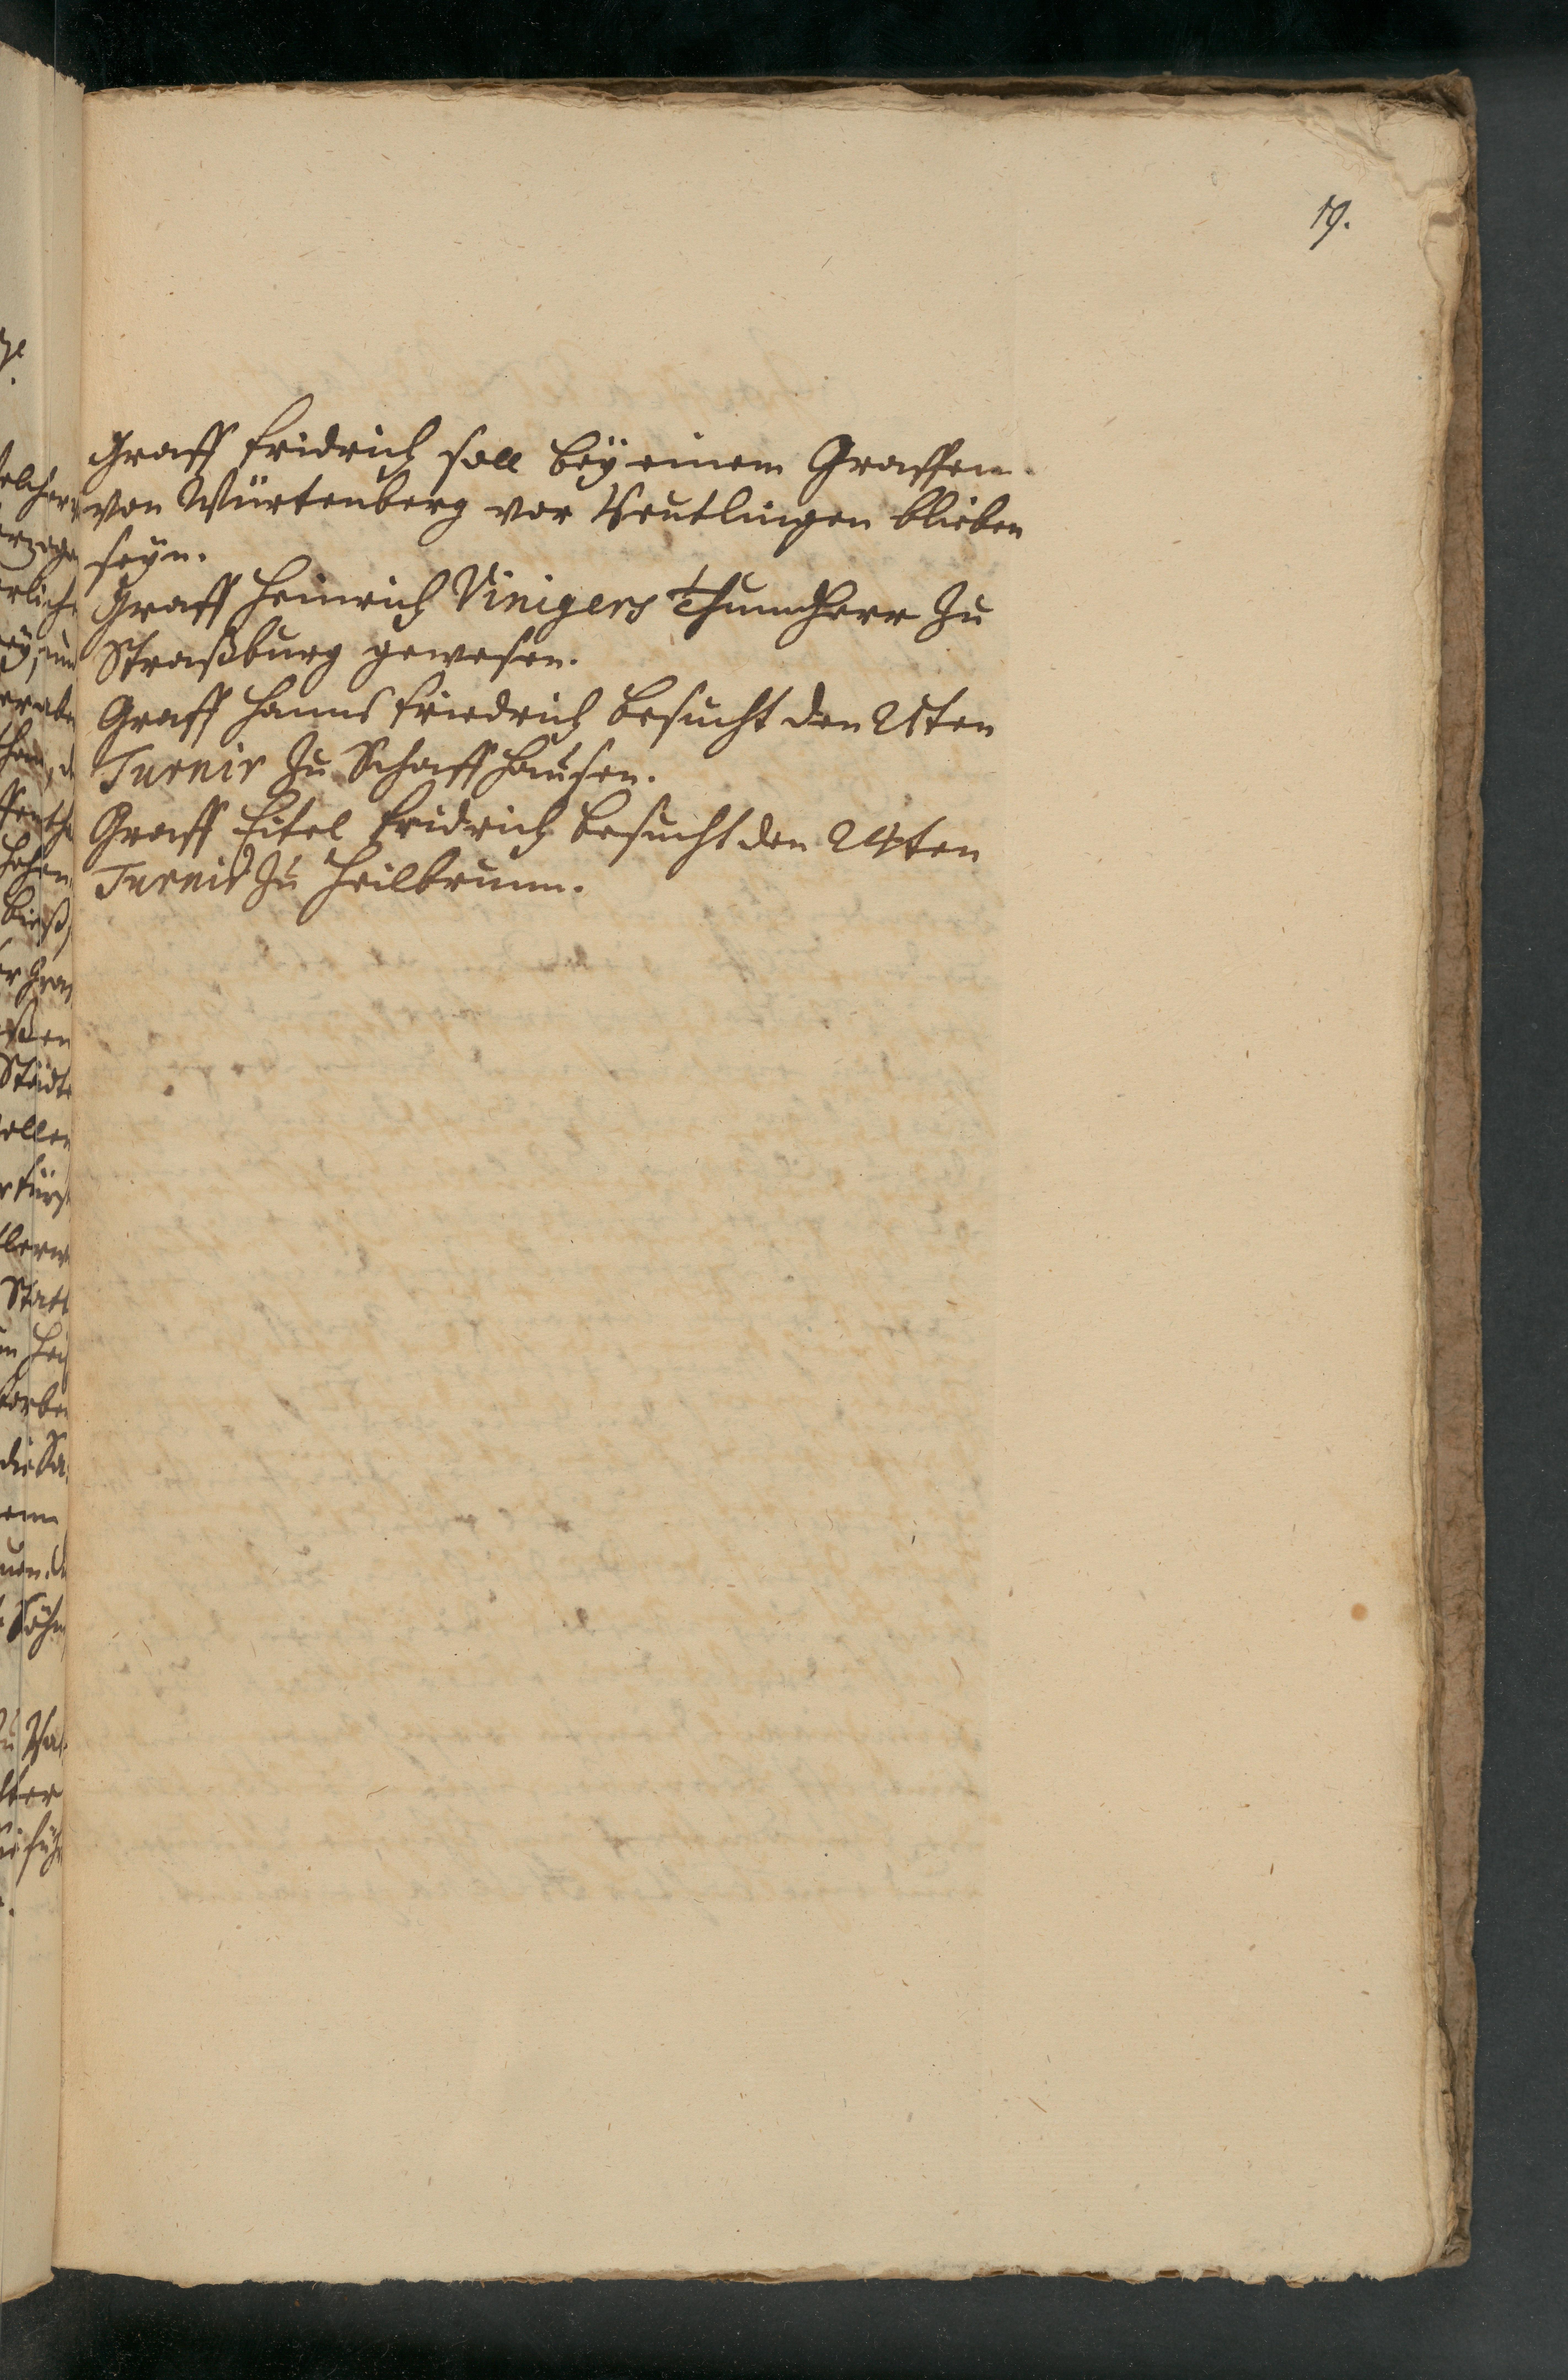 19.
Graff Fridrich soll beÿ einem Graffen
von Würtenberg vor Reutlingen blieben
seÿn.
Graff Heinrich Vinigers Thumherr zu
Straßburg gewesen.
Graff Hanns Friedrich besucht den 21ten
Turnir zu Schaffhausen.
Graff Eitel Fridrich besucht den 24ten
Turnir zu Heilbrunn.